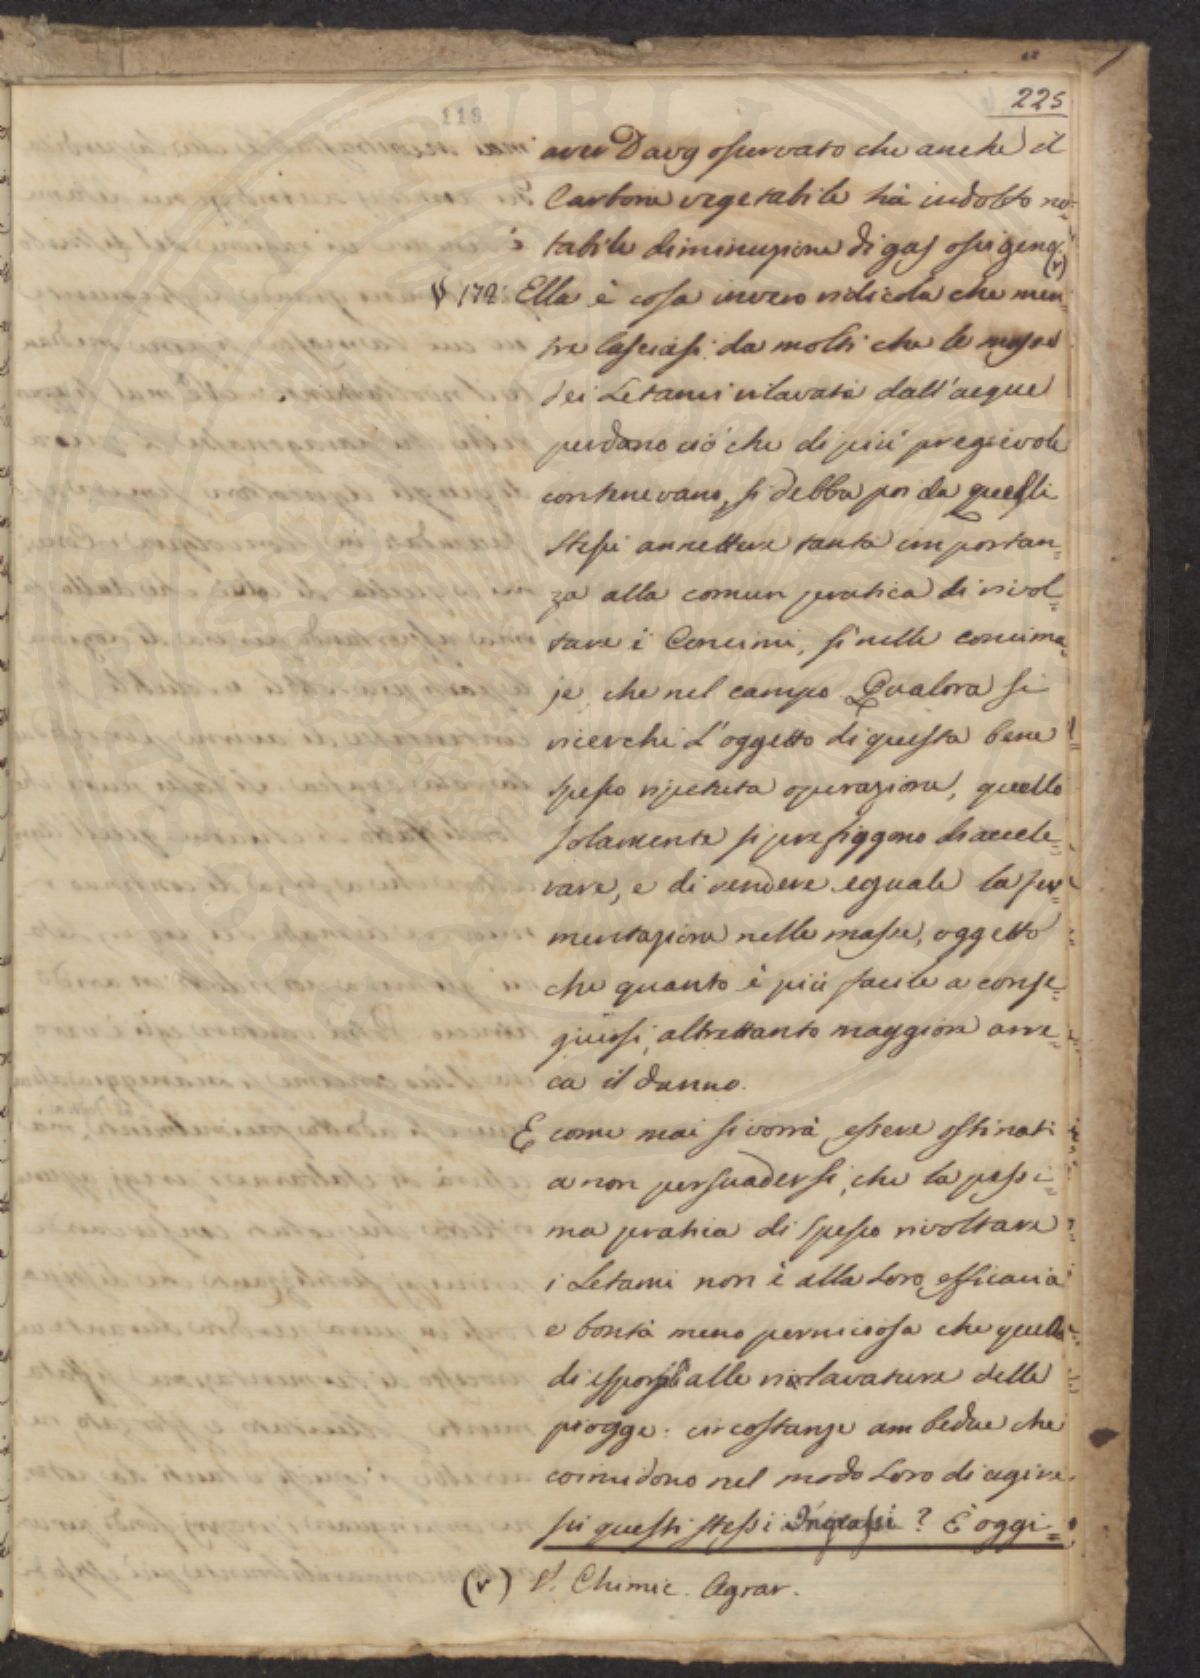 225
119
aver Davy osservato che anche il
Carbone vegetabile hà indotto no=
tabile diminuzione di gas ossigeno. (v)
§ 172. Ella è cosa invero ridicola che men=
tre lasciasi da molti che le masse
dei Letami rilavate dall'acque
perdano ciò che di più pregievole
contenevano, si debba poi da quelli
stessi annettere tanta importan=
za alla comun pratica di rivol=
tare i Concimi, sì nelle concima=
je, che nel campo. Qualora si
ricerchi l'oggetto di questa bene
spesso ripetuta operazione, quello
solamente si prefiggono di accele=
rare, e di rendere eguale la fer=
mentazione nelle masse, oggetto
che quanto è più facile a conse=
guirsi, altrettanto maggiore arre=
ca il danno.
E come mai si vorrà essere ostinati
a non persuadersi, che la pessi=
ma pratica di spesso rivoltare
i Letami non è alla loro efficacia
e bontà meno perniciosa che quella
di esporli alle rilavature delle
piogge: circostanze ambedue che
coincidono nel modo loro di agire
su questi stessi Ingrassi? È oggi=
(v) V. Chimic. Agrar.